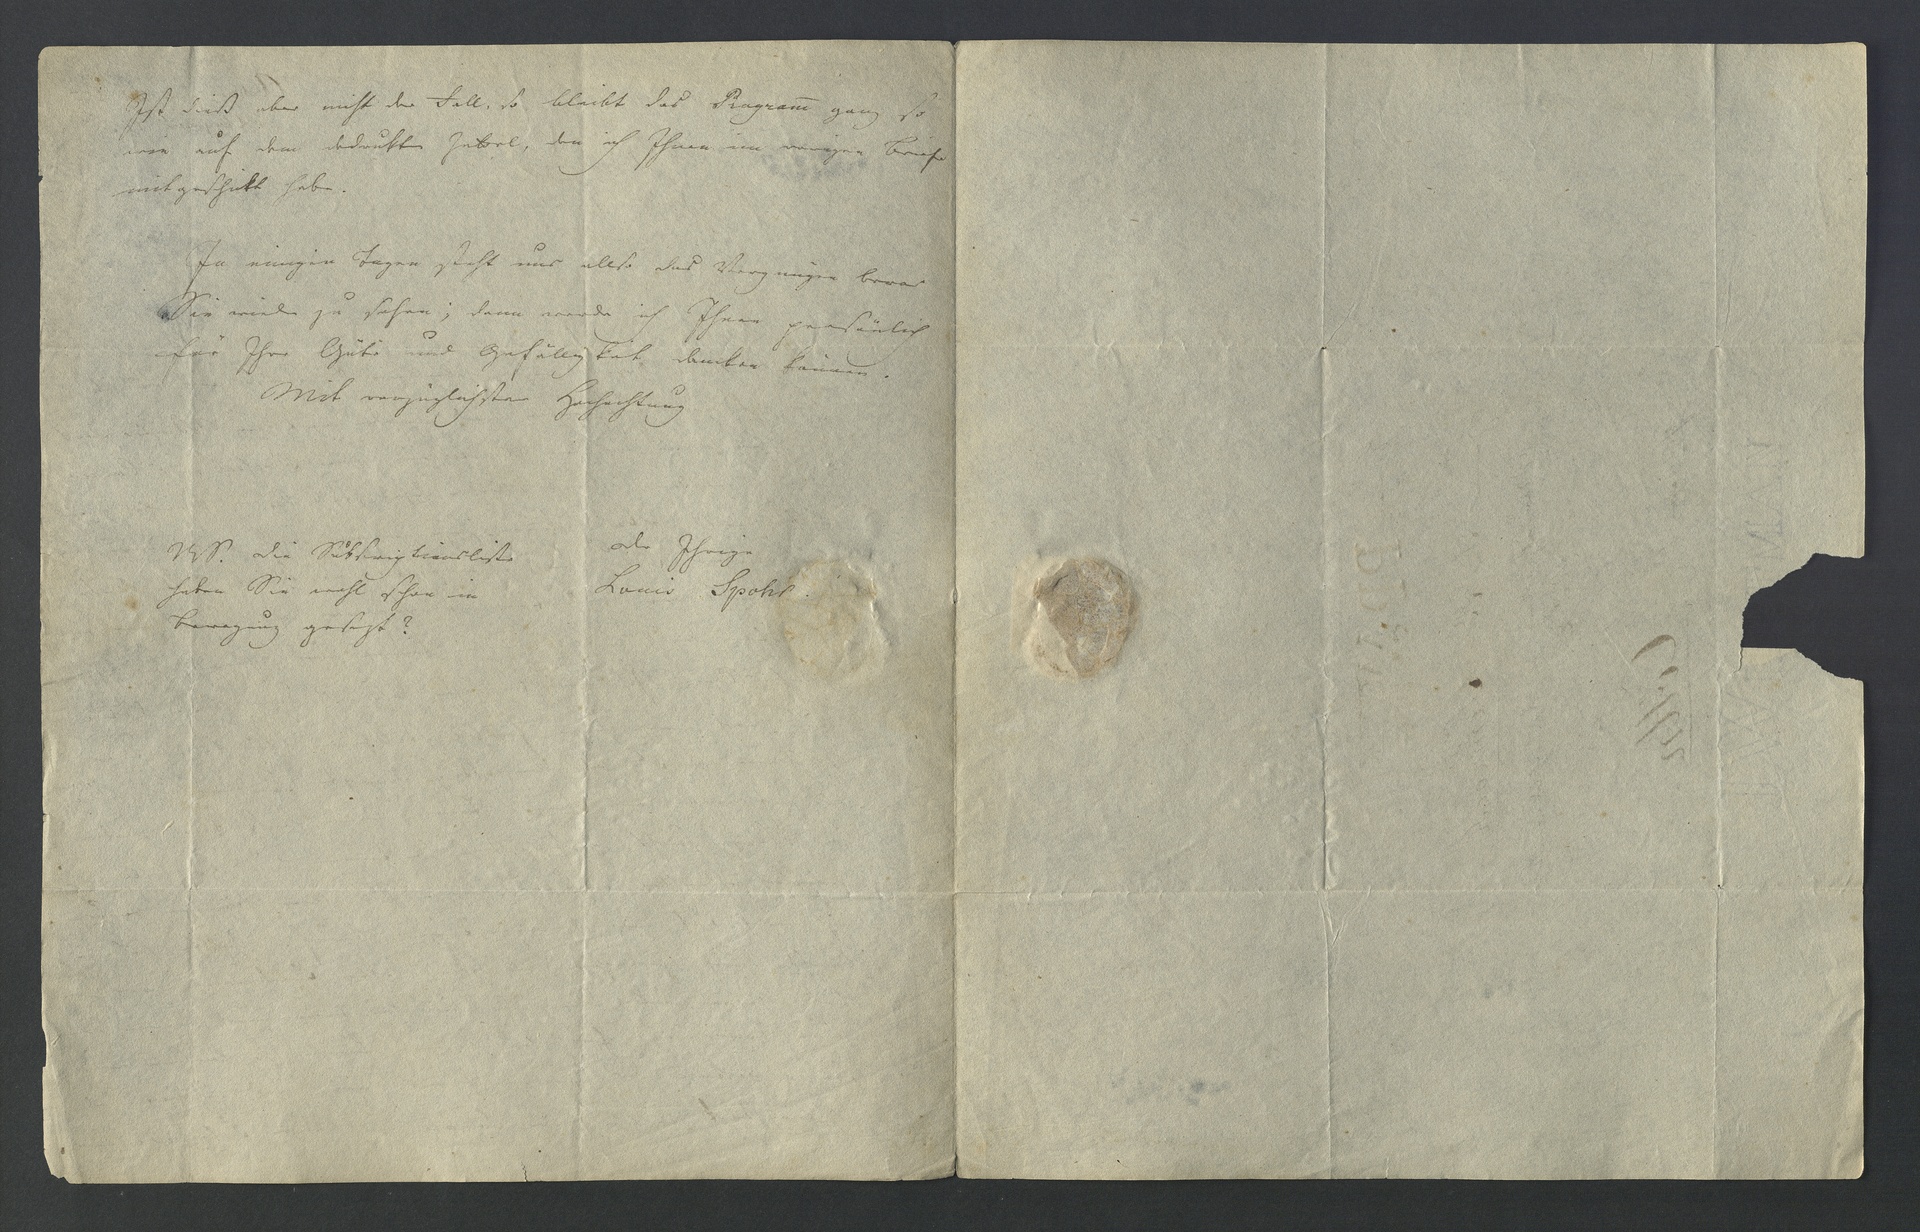 Ist dieß aber nicht der Fall, so bleibt das Programm̄ ganz so
wie auf dem gedruckten Zettel, den ich Ihnen im vorigen Briefe
mitgeschickt habe.
In einigen Tagen steht uns also das Vergnügen bevor
Sie wieder zu sehen; dann werde ich Ihnen persönlich
für Ihre Güte und Gefälligkeit danken können.
Mit vorzüglichster Hochachtung
der Ihrige
Louis Spohr.
NS. Die Subskriptionsliste
haben Sie wohl schon in
Bewegung gesetzt?